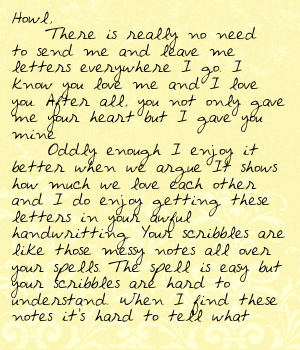 Howl,
There is really no need
to send me and leave me
letters everywhere I go. I
know you love me and I love
you After all, you not only gave
me your heart but I gave you
mine
Oddly enough I enjoy it
better when we argue It shows
how much we love each other
and I do enjoy getting these
letters in your awful
handwritting. Your scribbles are
like those messy notes all over
your spells. The spell is easy but
your scribbles are hard to
understand. When I find these
notes it's hard to tell what